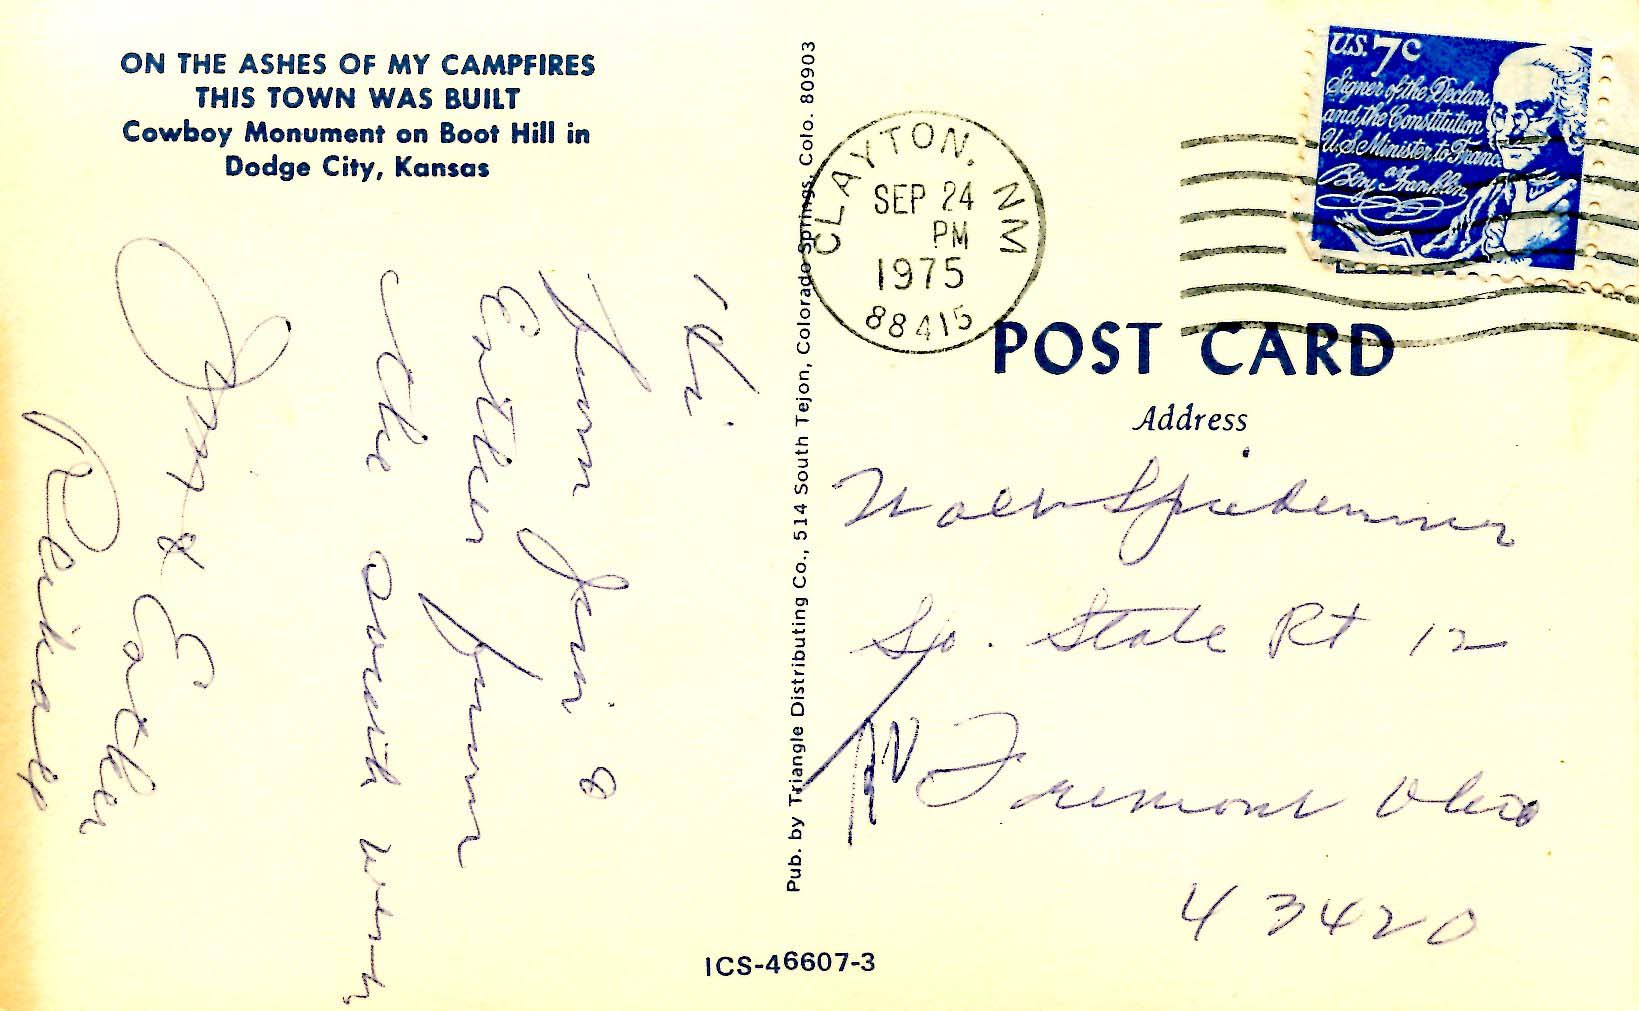 ON THE ASHES OF MY CAMPFIRES
THIS TOWN WAS BUILT
Cowboy Monument on Boot Hill in
Dodge City, Kansas
Hi
from Jim &
Esther from
the south west
Jim & Esther
Pub. by Triangle Distributing Co., 514 South Tejon, Colorado Springs, Colo. 80903
ICS-46607-3
CLAYTON, NM
SEP 24
PM
1975
88415
U.S. 7c
Signer of the Declara
and the Constitution
U.S. Minister to Franc
Benj Franklin
POST CARD
Address
So. State Rt 12
Fremont Ohio
43420